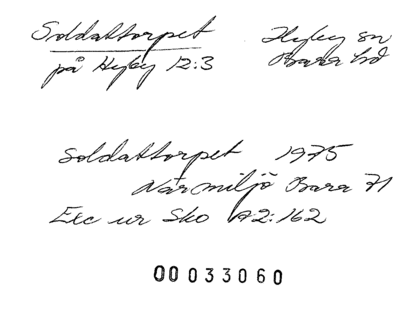 Soldattorpet
på Hyby 12:3
Hyby sn
Bara hd
Soldattorpet 1975
Når miljö Bara 71
Exc ur Sko A2:162
00033060